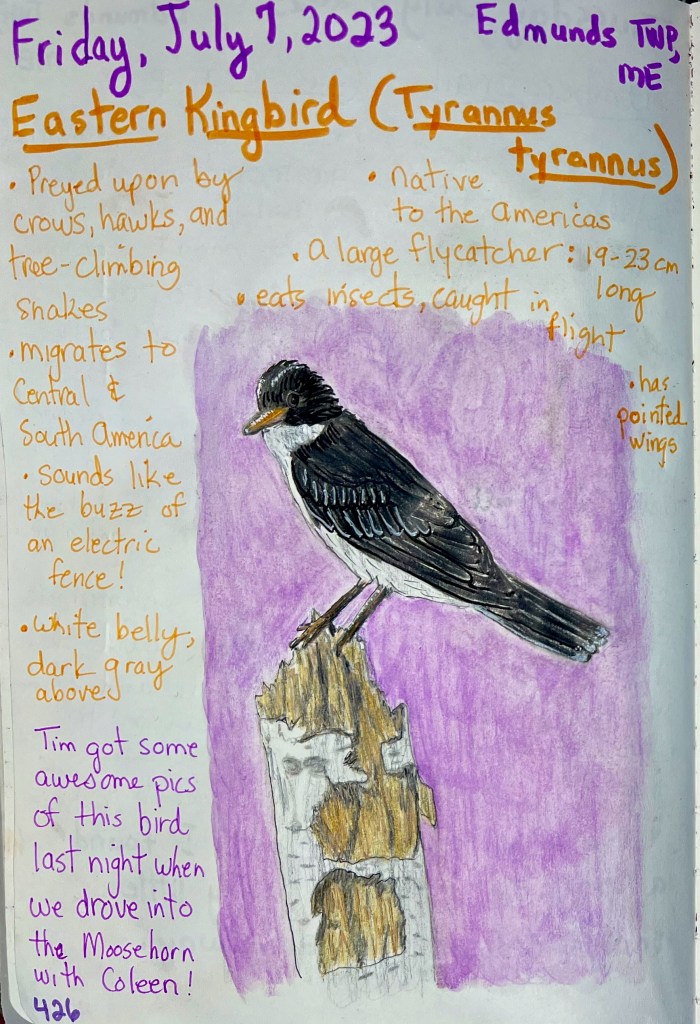 Friday, July 7, 2023
Edmunds TWP,
ME
Eastern Kingbird (Tyrannus
tyrannus)
• Preyed upon by
crows, hawks, and
tree-climbing
snakes
• migrates to
Central &
South America
• sounds like
the buzz of
an electric
fence!
• white belly,
dark gray
above
• native
to the americas
• a large flycatcher: 19-23 cm
long
• eats insects, caught in
flight
• has
pointed
wings
Tim got some
awesome pics
of this bird
last night when
we drove into
the Moosehorn
with Coleen!
426